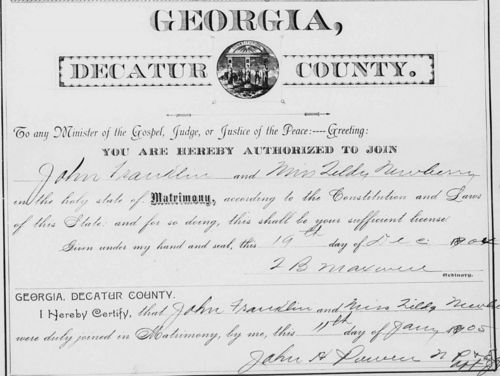 GEORGIA,
DECATUR COUNTY.
To any Minister of the Gospel, Judge, or Justice of the Peace:----Greeting:
YOU ARE HEREBY AUTHORIZED TO JOIN
John Franklin and Miss Tilda Newberry
in the holy state of Matrimony, according to the Constitution and Laws
of this State: and for so doing, this shall be your sufficient license
Given under my hand and seal, this 19th day of Dec 1904
T B Maxwell
Ordinary.
GEORGIA, DECATUR COUNTY.
I Hereby Certify, that John Franklin and Miss Tilda Newbe
were duly joined in Matrimony, by me, this 11th day of Jany 1905
John H